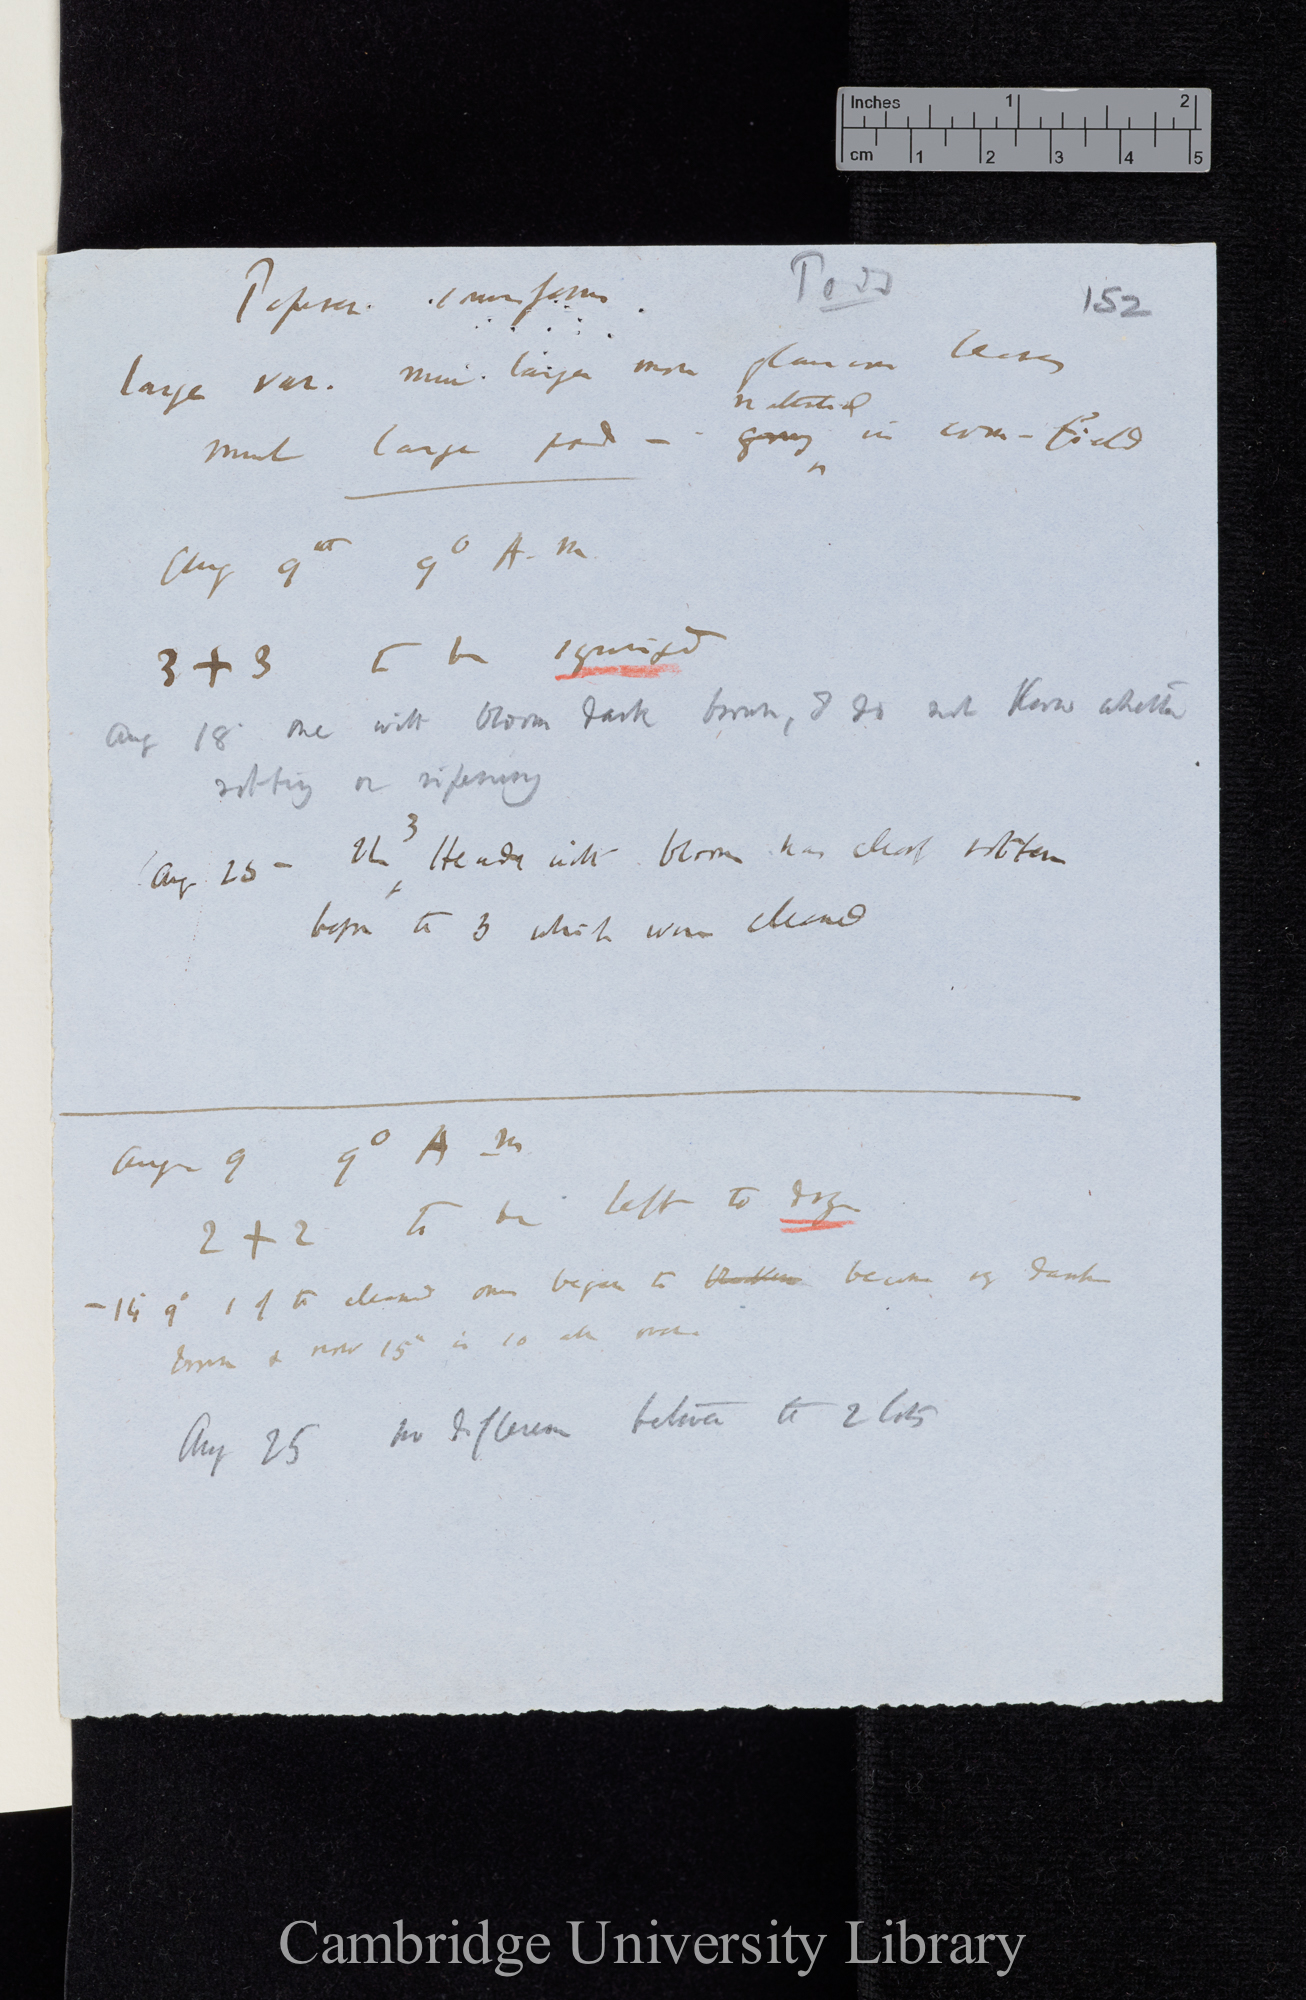 Inches 1 2
cm 1 2 3 4 5
Papaver somniferum. Pods 152
large var. with larger more glaucous leaves
much large pod — in corn-field
Aug 9th 9° A.M
3 + 3 to be syringed
Aug 18 one with bloom dark brown, I do not know whether
rotting or ripening
Aug 25 — The 3 Heads with bloom rotten
before the 3 which were cleaned
Aug 9 9° A M
2 + 2 to be left to dry
— 14 9° 1 of the cleaned ones began to become dark
brown & now 15th is so all over
Aug 25 no difference between the 2 lots
Cambridge University Library